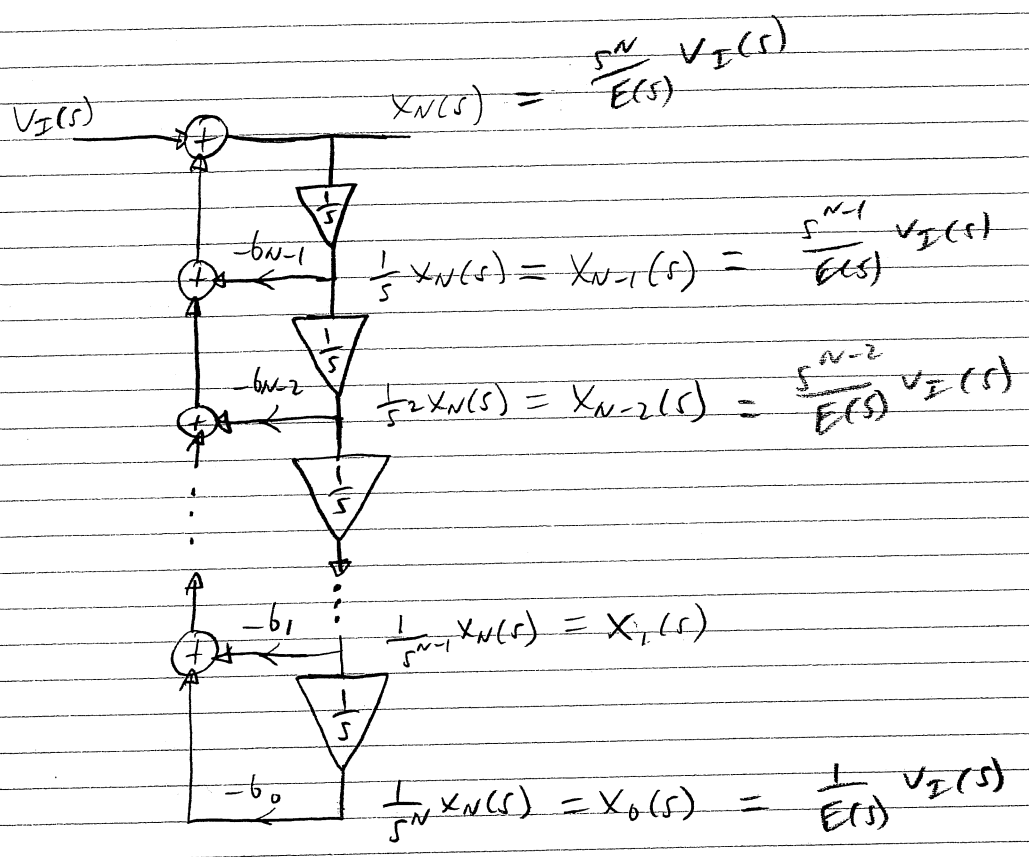 V_I(s)
X_N(s) = s^N/E(s) V_I(s)
+
1/s
-b_{N-1}
+
1/s X_N(s) = X_{N-1}(s) = s^{N-1}/E(s) V_I(s)
1/s
-b_{N-2}
+
1/s^2 X_N(s) = X_{N-2}(s) = s^{N-2}/E(s) V_I(s)
1/s
-b_1
+
1/s^{N-1} X_N(s) = X_1(s)
1/s
-b_0
1/s^N X_N(s) = X_0(s) = 1/E(s) V_I(s)